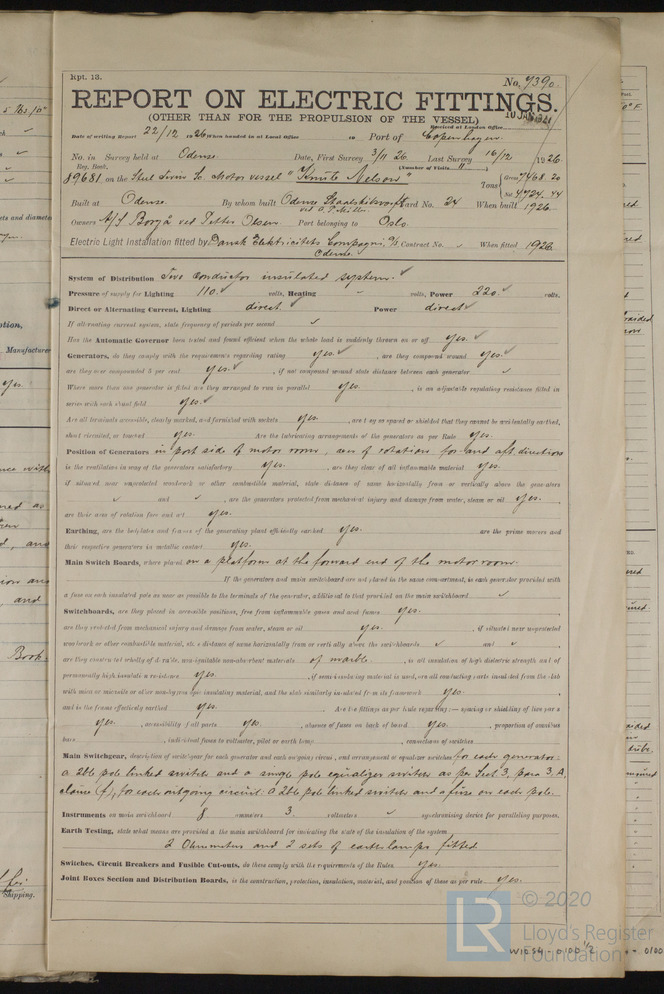 Rpt. 13.
No. 7390.
REPORT ON ELECTRIC FITTINGS.
(OTHER THAN FOR THE PROPULSION OF THE VESSEL)
Received at London Office
Date of writing Report 22/12 1926 When handed in at Local Office 19 Port of Copenhagen.
No. in Survey held at Odense Date, First Survey 3/11 26 Last Survey 16/12 1926.
Reg. Book. (Number of Visits 11)
89681 on the Steel Twin Sc. Motor vessel "Knute Nelson" Tons Gross 7468.20
Net 4724.44
Built at Odense. By whom built Odense Staalskibsværft Yard No. 24 When built 1926.
ved A. P. Møller.
Owners A/S Borgå ved Fetter Olsen. Port belonging to Oslo.
Electric Light Installation fitted by Dansk Elektricitets Compagni, A/S. Contract No. When fitted 1926.
Odense.
System of Distribution Two conductor insulated system.
Pressure of supply for Lighting 110. volts, Heating volts, Power 220. volts.
Direct or Alternating Current, Lighting direct Power direct
If alternating current system, state frequency of periods per second
Has the Automatic Governor been tested and found efficient when the whole load is suddenly thrown on or off yes.
Generators, do they comply with the requirements regarding rating yes. , are they compound wound yes.
are they over compounded 5 per cent. yes. , if not compound wound state distance between each generator
Where more than one generator is fitted are they arranged to run in parallel yes. , is an adjustable regulating resistance fitted in
series with each shunt field yes.
Are all terminals accessible, clearly marked, and furnished with sockets yes. , are they so spaced or shielded that they cannot be accidentally earthed,
short circuited, or touched yes. Are the lubricating arrangements of the generators as per Rule yes.
Position of Generators in port side of motor room, axis of rotations for and aft directions
is the ventilation in way of the generators satisfactory yes. , are they clear of all inflammable material yes.
if situated near unprotected woodwork or other combustible material, state distance of same horizontally from or vertically above the generators
and , are the generators protected from mechanical injury and damage from water, steam or oil yes.
are their axes of rotation fore and aft yes.
Earthing, are the bedplates and frames of the generating plant efficiently earthed yes. are the prime movers and
their respective generators in metallic contact yes.
Main Switch Boards, where placed on a platform at the forward end of the motor room.
If the generators and main switchboard are not placed in the same compartment, is each generator provided with
a fuse on each insulated pole as near as possible to the terminals of the generator, additional to that provided on the main switchboard
Switchboards, are they placed in accessible positions, free from inflammable gases and acid fumes yes.
are they protected from mechanical injury and damage from water, steam or oil yes. , if situated near unprotected
woodwork or other combustible material, state distance of same horizontally from or vertically above the switchboards and
are they constructed wholly of durable, non-ignitable non-absorbent materials of marble , is all insulation of high dielectric strength and of
permanently high insulation resistance yes. , if semi-insulating material is used, are all conducting parts insulated from the slab
with mica or micanite or other non-hygroscopic insulating material, and the slab similarly insulated from its framework yes.
and is the frame effectively earthed yes. Are the fittings as per Rule regarding :— spacing or shielding of live parts
yes. , accessibility of all parts yes. , absence of fuses on back of board yes. , proportion of omnibus
bars , individual fuses to voltmeter, pilot or earth lamp , connections of switches
Main Switchgear, description of switchgear for each generator and each outgoing circuit, and arrangement of equaliser switches for each generator:
a dble pole linked switch and a single pole equaliser switch as per Sect. 3, para 3, A,
clause (f), for each outgoing circuit: a dble pole linked switch and a fuse on each pole.
Instruments on main switchboard 8 ammeters 3 voltmeters synchronising device for paralleling purposes.
Earth Testing, state what means are provided at the main switchboard for indicating the state of the insulation of the system
2 Ohmmetres and 2 sets of earth lamps fitted
Switches, Circuit Breakers and Fusible Cut-outs, do these comply with the requirements of the Rules yes.
Joint Boxes Section and Distribution Boards, is the construction, protection, insulation, material, and position of these as per rule yes.
© 2020
LR Lloyd's Register
Foundation
W1254-0100 1/2